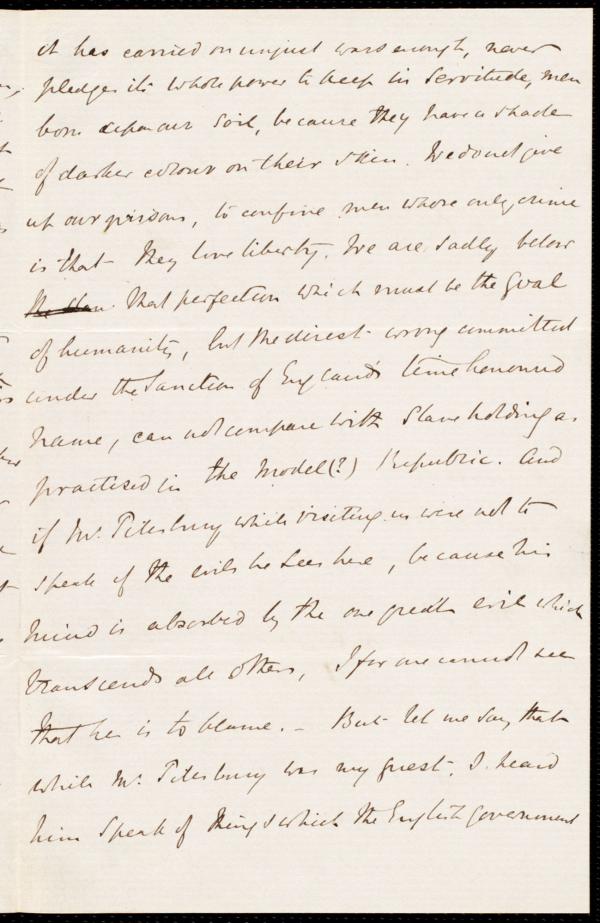 it has carried on unjust wars enough, never
pledges its whole power to keep in servitude, men
born upon our soil, because they have a shade
of darker colour on their skin. We do not give
up our prisons, to confine men whose only crime
is that they love liberty. We are sadly below
that perfection which must be the goal
of humanity, but the direst wrong committed
under the sanction of England's time honoured
name, can not compare with slave holding as
practised in the Model(?) Republic. And
if Mr. Pillsbury while visiting us were not to
speak of the evils he sees here, because his
mind is absorbed by the one great evil which
transcends all others, I for one cannot see
that he is to blame. – But let me say that
while Mr. Pillsbury was my guest, I heard
him speak of things which the English government